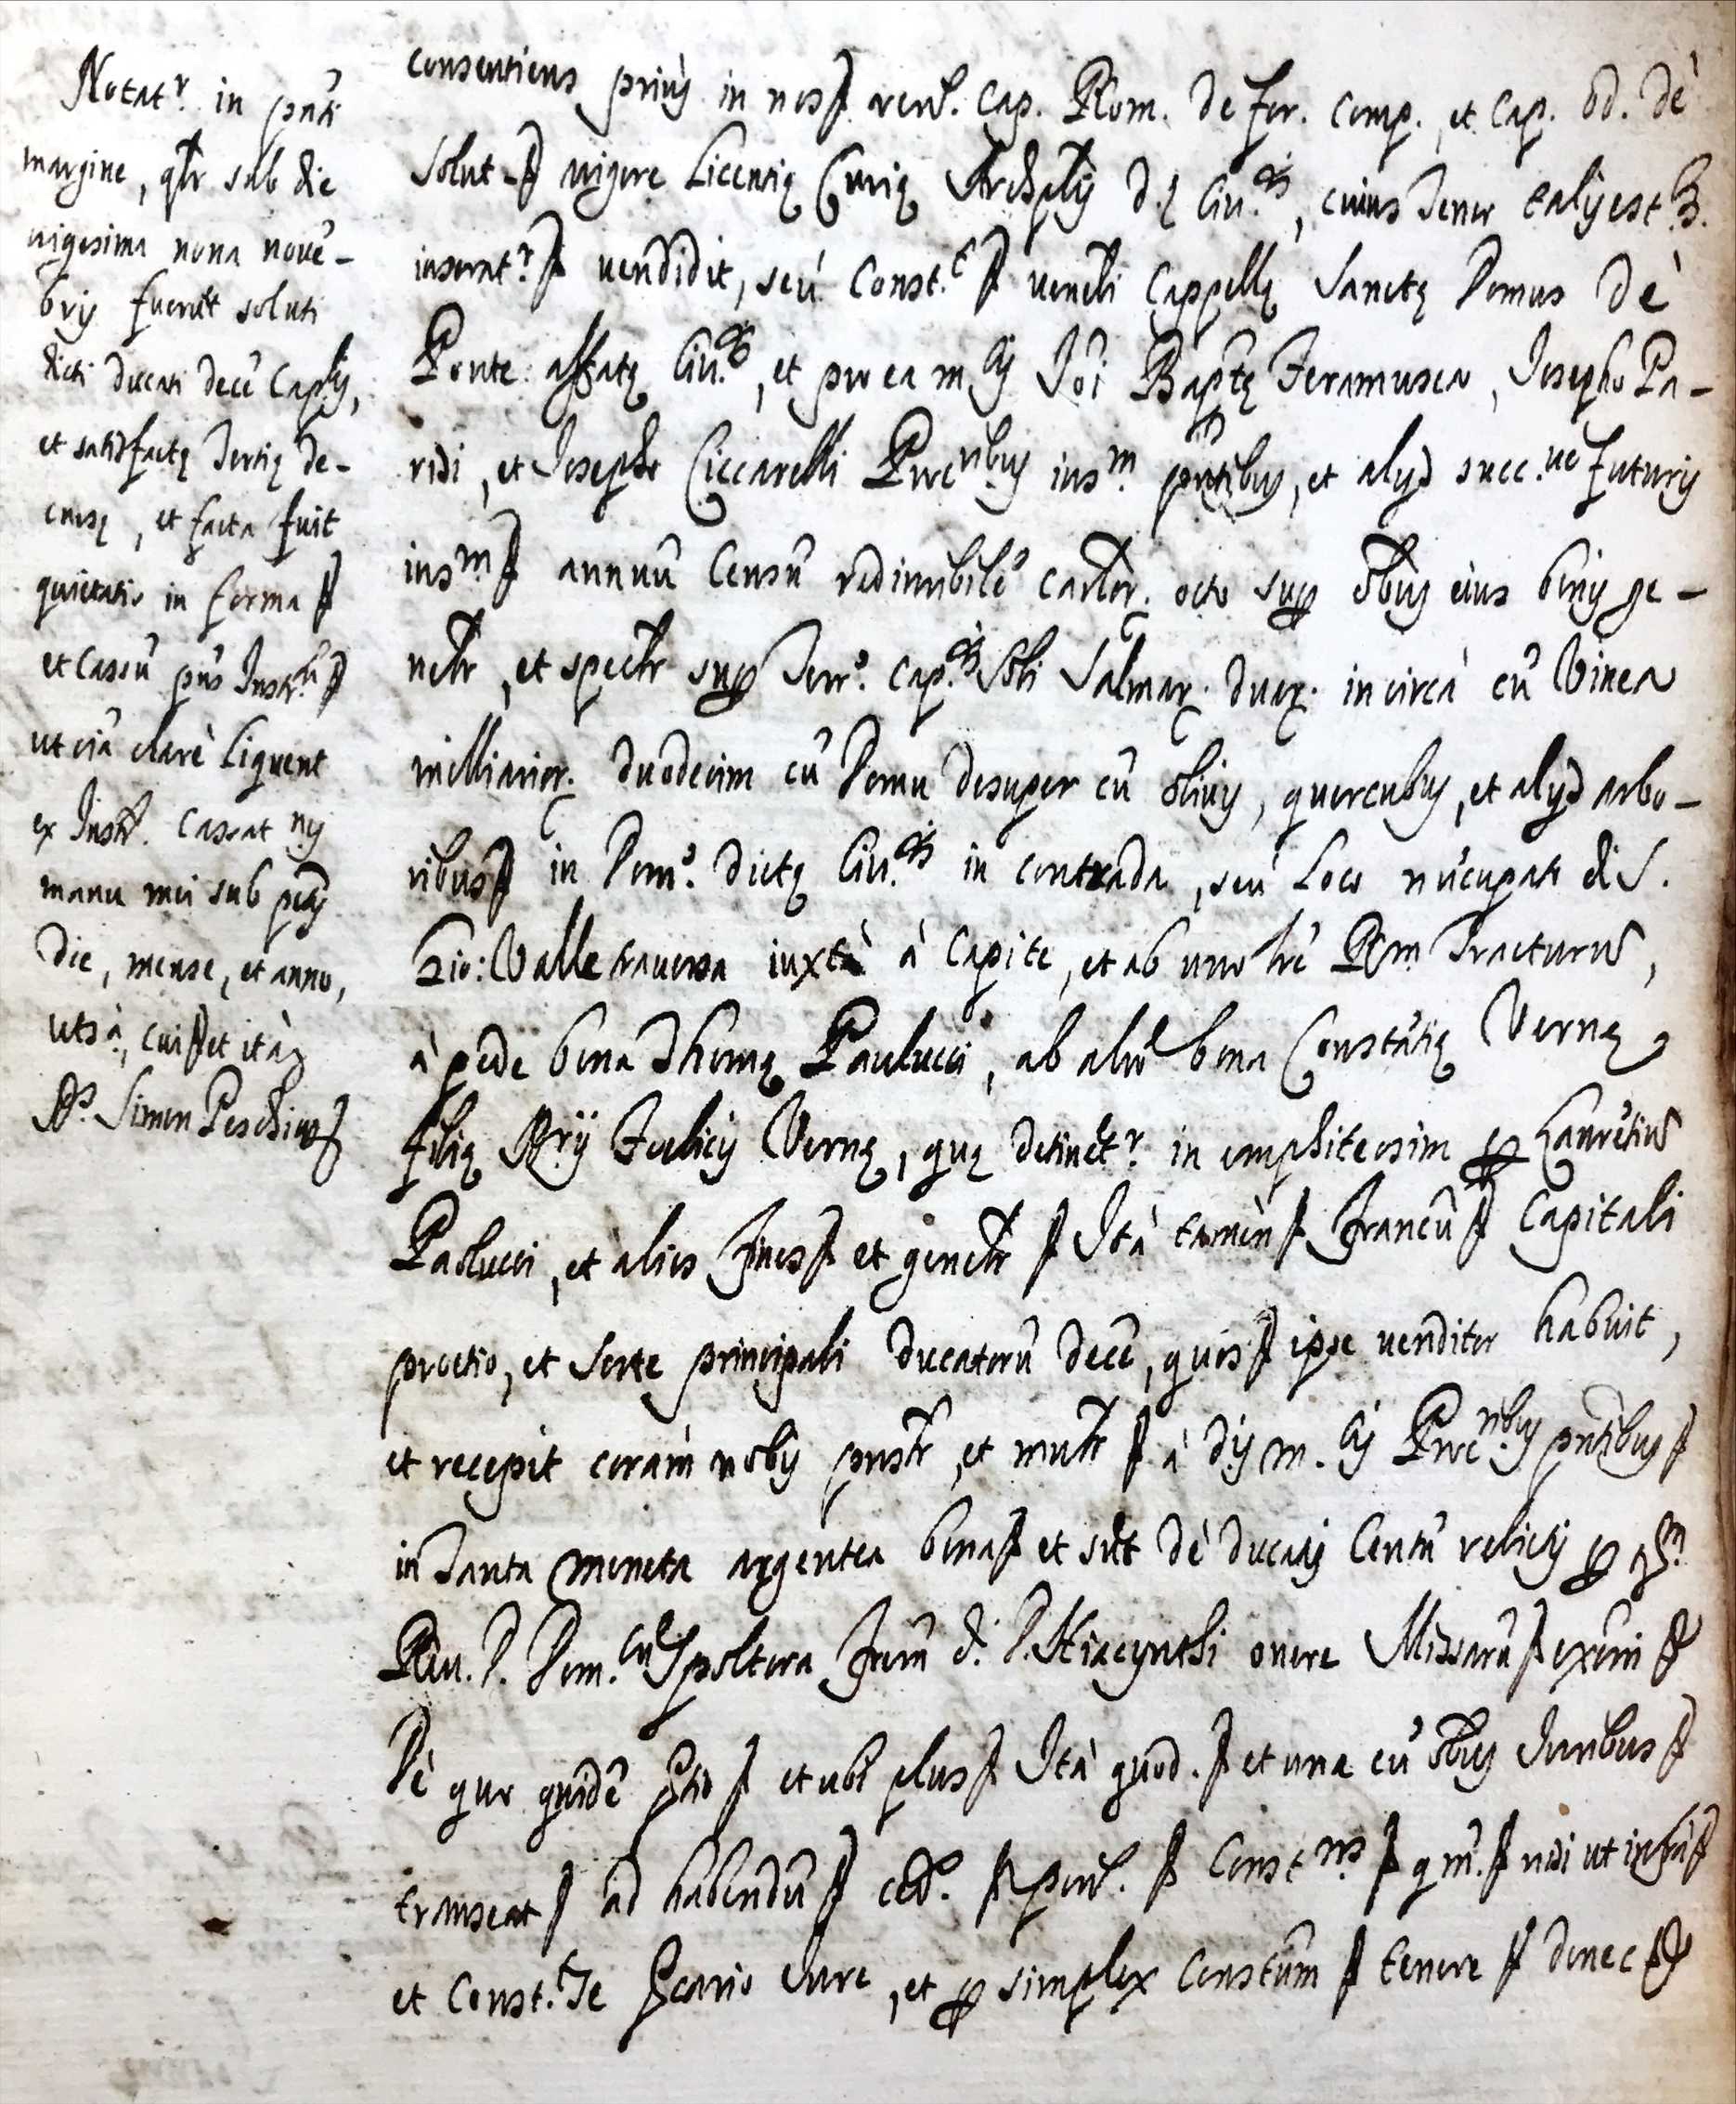 Notat.r in pnti
margine, qlr sub die
vigesima nona nové-
bris fuerut soluti
dicti ducati decē Caplis,
et satisfactę tertię de-
cursę, et facta fuit
quietatio in forma
et Cassū pns Instr.
ut etiā clarè liquent
ex Instr. Cassat.nis
manu mei sub
die, mense, et anno,
uts.a, cui et ità
Simon Peschius
consentiens priùs in nos vers. Cap. Rom. de for. comp. et Cap. Od. dè
Solut. vigore licentię Curię Archiplis d.ę Civ.tis, cuius tenor talis est
inserat.r vendidit, seù Const. venbli Cappellę Sanctę Domus dè
Ponte affatę Civ.tis, et pro ea m.cis Joi Baptę Feramusca, Josepho Pa-
ridi, et Josepho Ciccarelli Procribus ins.m pntibus, et alijs succ.ve futuris
ins.m annuū Censū redimibilē Carlor. octo sup oibus eius bonis ge-
neltr, et speclr sup terr.o cap.tis soli Salmar. duar. in circà cū Vinea
milliarior. duodecim cū Domu desuper cū olivis, quercubus, et alijs arbo-
ribus in Dom.o dictę Civ.tis in contrada, seù loco nūcupati di S.
Gio: Valle traversa iuxtà à Capite, et ab uno lre Rm Tracturus,
à pede bona Thomę Paulucci, ab alio bona Constātię Vernę,
filię Felicis Vernę, quę detinet.r in emphiteosim p Laurētiū
Paolucci, et alios fines et genelr Ità tamèn Francū Capitali
proetio, et sorte principali ducatorū decē, quos ipse venditor habuit,
et recepit coràm nobis pnstr, et multr à dis m.cis Procribus pntibus
in tanta moneta argentea bona et sūt dè ducatis Centū relictis p
Rev. D. Dom.cū Spoltora Frem d. D. Hiacynthi onere Missarū
Dè quo quidē ptio et ubi plus Ità quod. et una cū oibus Juribus
transeat ad habendū ced. Const.ns qm. nisi ut infrà
et Const. se pcario Jure, et p simplex Constum tenere donec